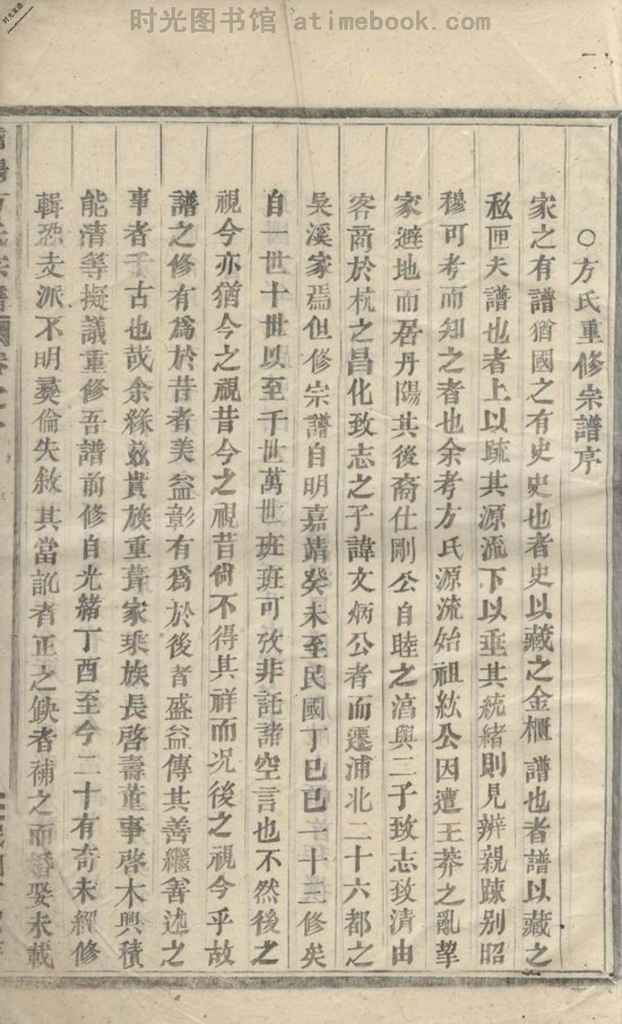 时光图书馆 atimebook.com
○方氏重修宗譜序
家之有譜猶國之有史史也者史以藏之金櫃譜也者譜以藏之
私匣夫譜也者上以疏其源流下以垂其統緒則見辨親踈别昭
穆可考而知之者也余考方氏源流始祖紘公因遭王莽之亂挈
家避地而居丹陽其後裔仕剛公自睦之淓與二子致志致清由
客商於杭之昌化致志之子諱文炳公者而遷浦北二十六都之
吳溪家焉但修宗譜自明嘉靖癸未至民國丁巳已一十三修矣
自一世十世以至千世萬世班班可攷非託諸空言也不然後之
視今亦猶今之視昔今之視昔尙不得其祥而况後之視今乎故
譜之修有爲於昔者美益彰有爲於後者盛益傳其善繼善述之
事者千古也哉余緣茲貴族重葺家乘族長啓壽董事啓木興積
能清等擬議重修吾譜前修自光緒丁酉至今二十有奇未經修
輯恐支派不明彜倫失敘其當訛者正之缺者補之而婚娶未載
方氏宗譜